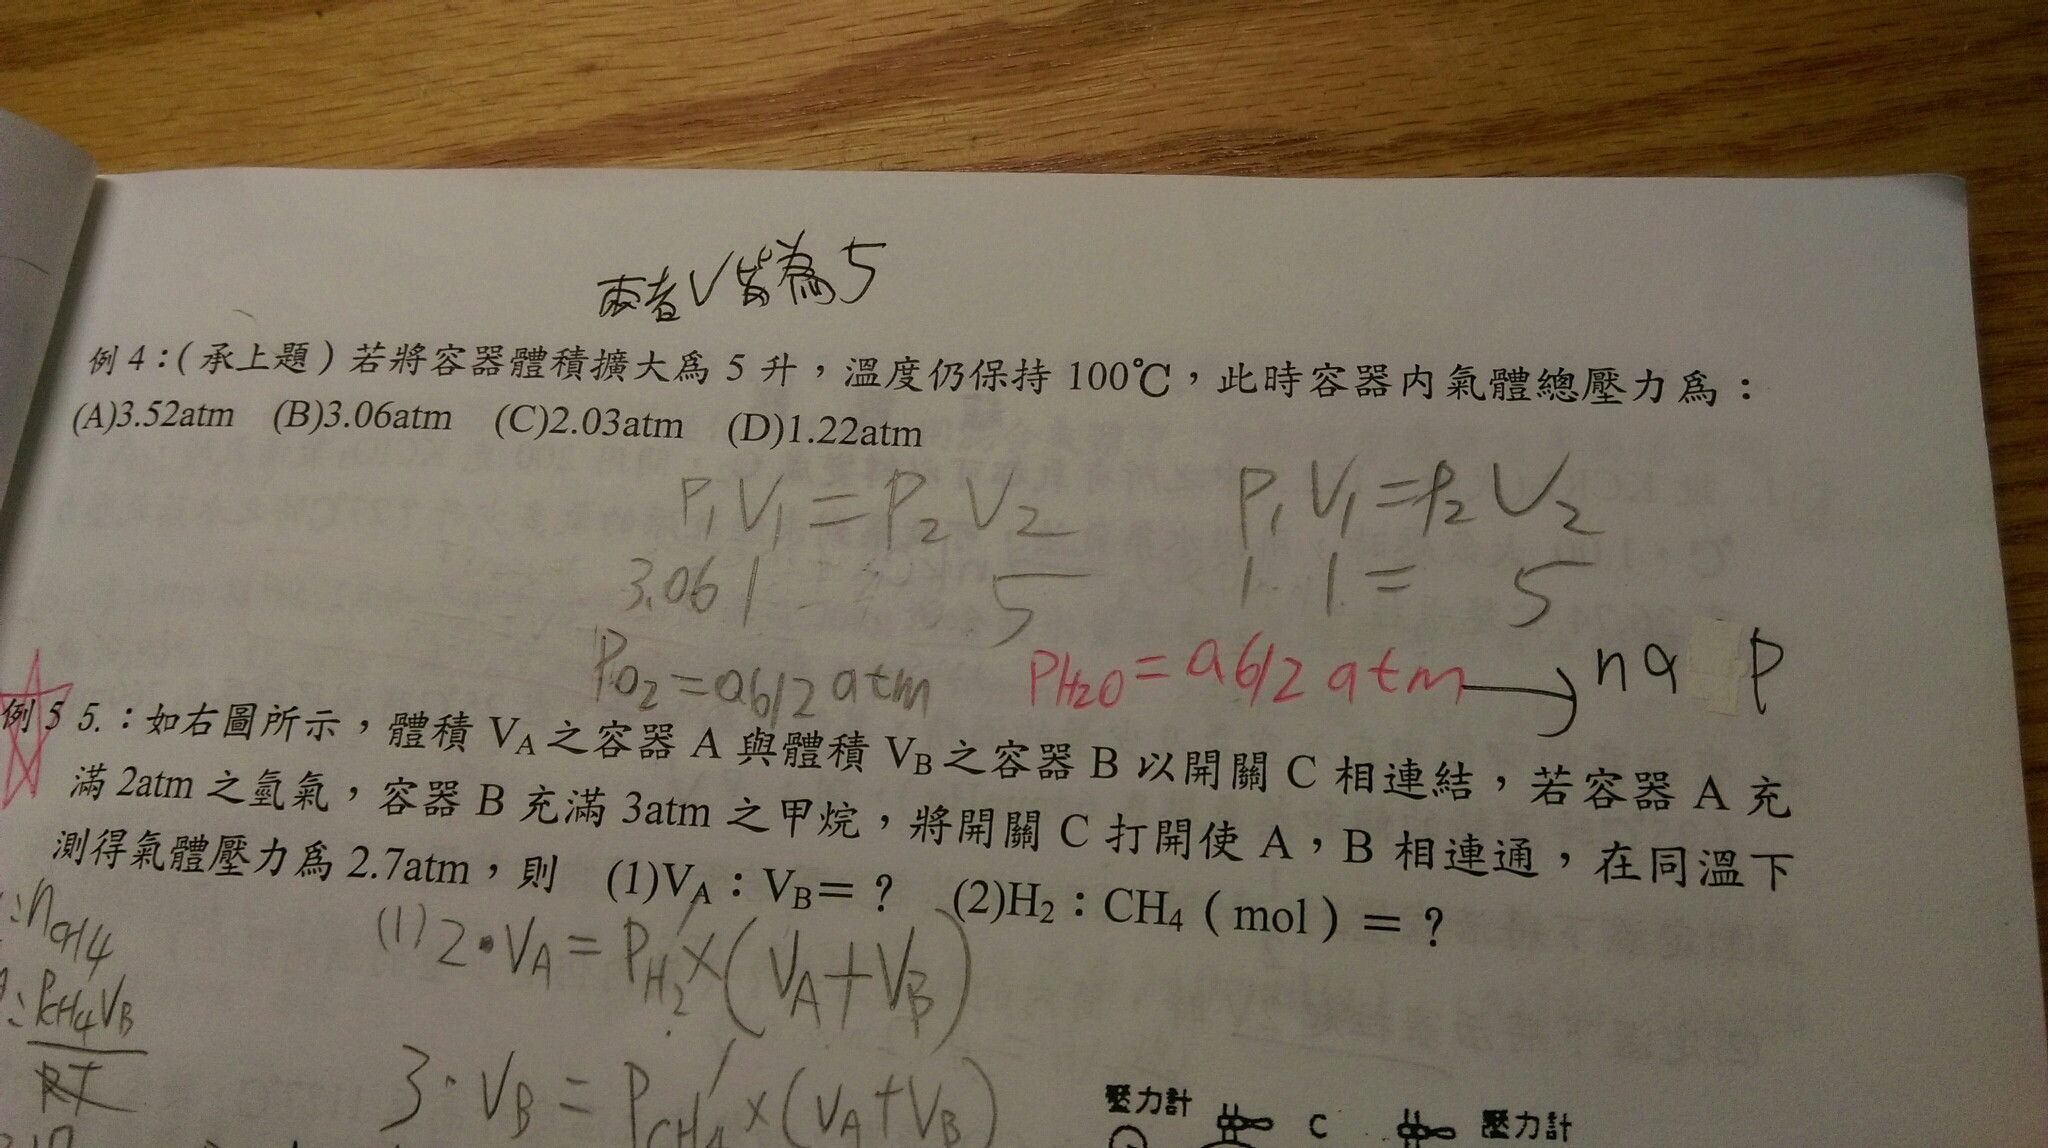 兩者V皆為5
例 4：( 承上題 ) 若將容器體積擴大爲 5 升，溫度仍保持 100℃，此時容器內氣體總壓力爲：
(A)3.52atm (B)3.06atm (C)2.03atm (D)1.22atm
P₁V₁=P₂V₂ P₁V₁=P₂V₂
3.06 1 5 1. 1= 5
PO₂=0.612atm PH₂O=0.612atm→ nα P
例 5 5.：如右圖所示，體積 VA 之容器 A 與體積 VB 之容器 B 以開關 C 相連結，若容器 A 充
滿 2atm 之氫氣，容器 B 充滿 3atm 之甲烷，將開關 C 打開使 A，B 相連通，在同溫下
測得氣體壓力爲 2.7atm，則 (1)VA：VB=？ (2)H₂：CH₄ ( mol ) =？
:nCH4
(1) 2·VA=PH₂'×(VA+VB)
:PCH4VB
RT
3·VB=PCH4'×(VA+VB)
壓力計 C 壓力計